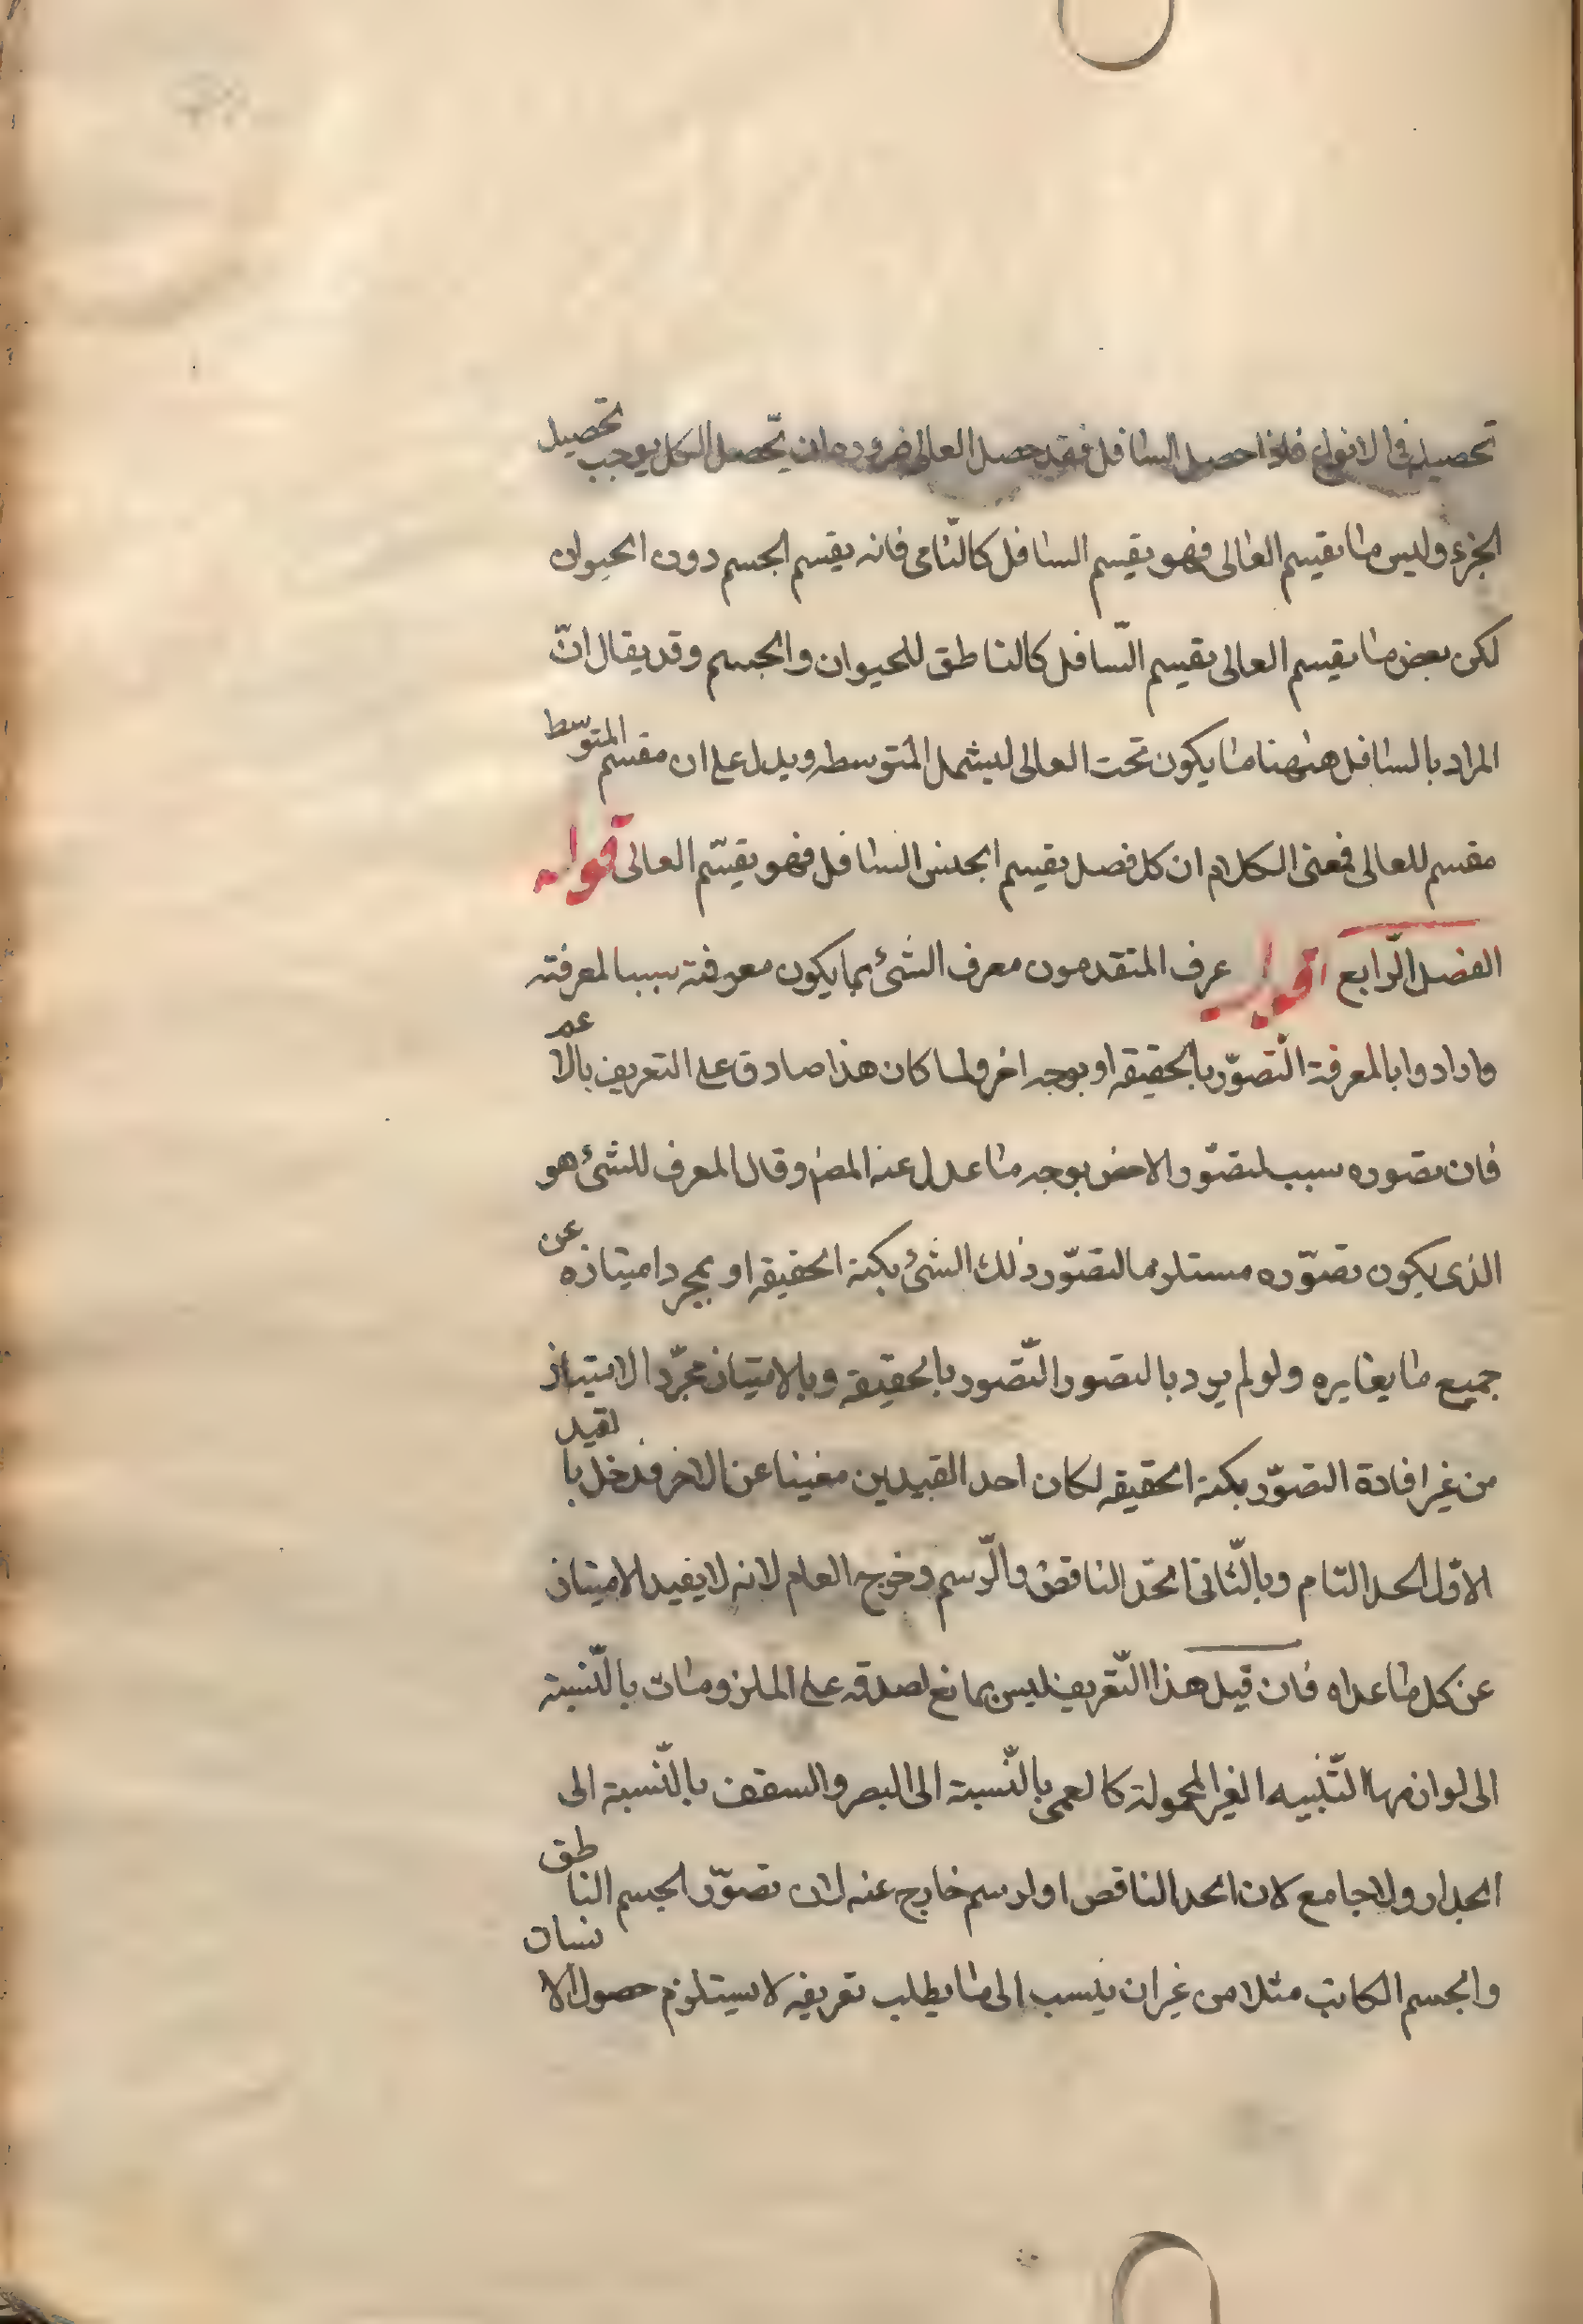 تحصيله في الانواع فاذا حصل السافل فقد حصل العالى ضرورة ان تحصل الكل يوجب تحصيل
الجزء وليس ما يقسم العالى فهو يقسم السافل كالنّامى فانه يقسم الجسم دون الحيوان
لكن بعض ما يقسم العالى يقسم السّافل كالناطق للحيوان والجسم وقد يقال انّ
المراد بالسافل هٰهنا ما يكون تحت العالى ليشمل المتوسطه ويدل على ان مقسم المتوسّط
مقسم للعالى فمعنى الكلام ان كل فصل يقسم الجنس السافل فهو يقسّم العالى قوله
الفصل الرّابع اقول عرف المتقدمون معرف الشئ بما يكون معرفته سببا لمعرفته
وارادوا بالمعرفة التّصوّر بالحقيقه او بوجه اخر ولما كان هذا صادق على التعريف بالاعم
فان تصوره سبب لتصوّر الاخص بوجه ما عدل عنه المصنف وقال المعرف للشئ هو
الذى يكون تصوّره مستلزما لتصوّر ذلك الشئ بكنه الحقيقه او بمجرد امتيازه عن
جميع ما يغايره ولو لم يرد بالتصور التّصور بالحقيقة وبالامتياز مجرّد الامتياز
من غير افادة التصوّر بكنه الحقيقه لكان احد القيدين مغنيا عن الاخر فدخل بالقيد
الاوّل الحد التام وبالثّانى الحدّ الناقص والرّسم وخرج العام لانه لا يفيد الامتياز
عن كل ما عداه فان قيل هذا التّعريف ليس بمانع لصدقه على الملزومات بالنّسبة
الى لوازمها التّنبيه الغير المحمولة كالعمى بالنّسبة الى البصر والسقف بالنّسبة الى
الجدار ولا جامع لان الحد الناقص او لرسم خارج عنه لان تصوّر الجسم الناطق
والجسم الكاتب مثلا من غير ان ينسب الى ما يطلب تعريفه لا يستلزم حصول الانسان